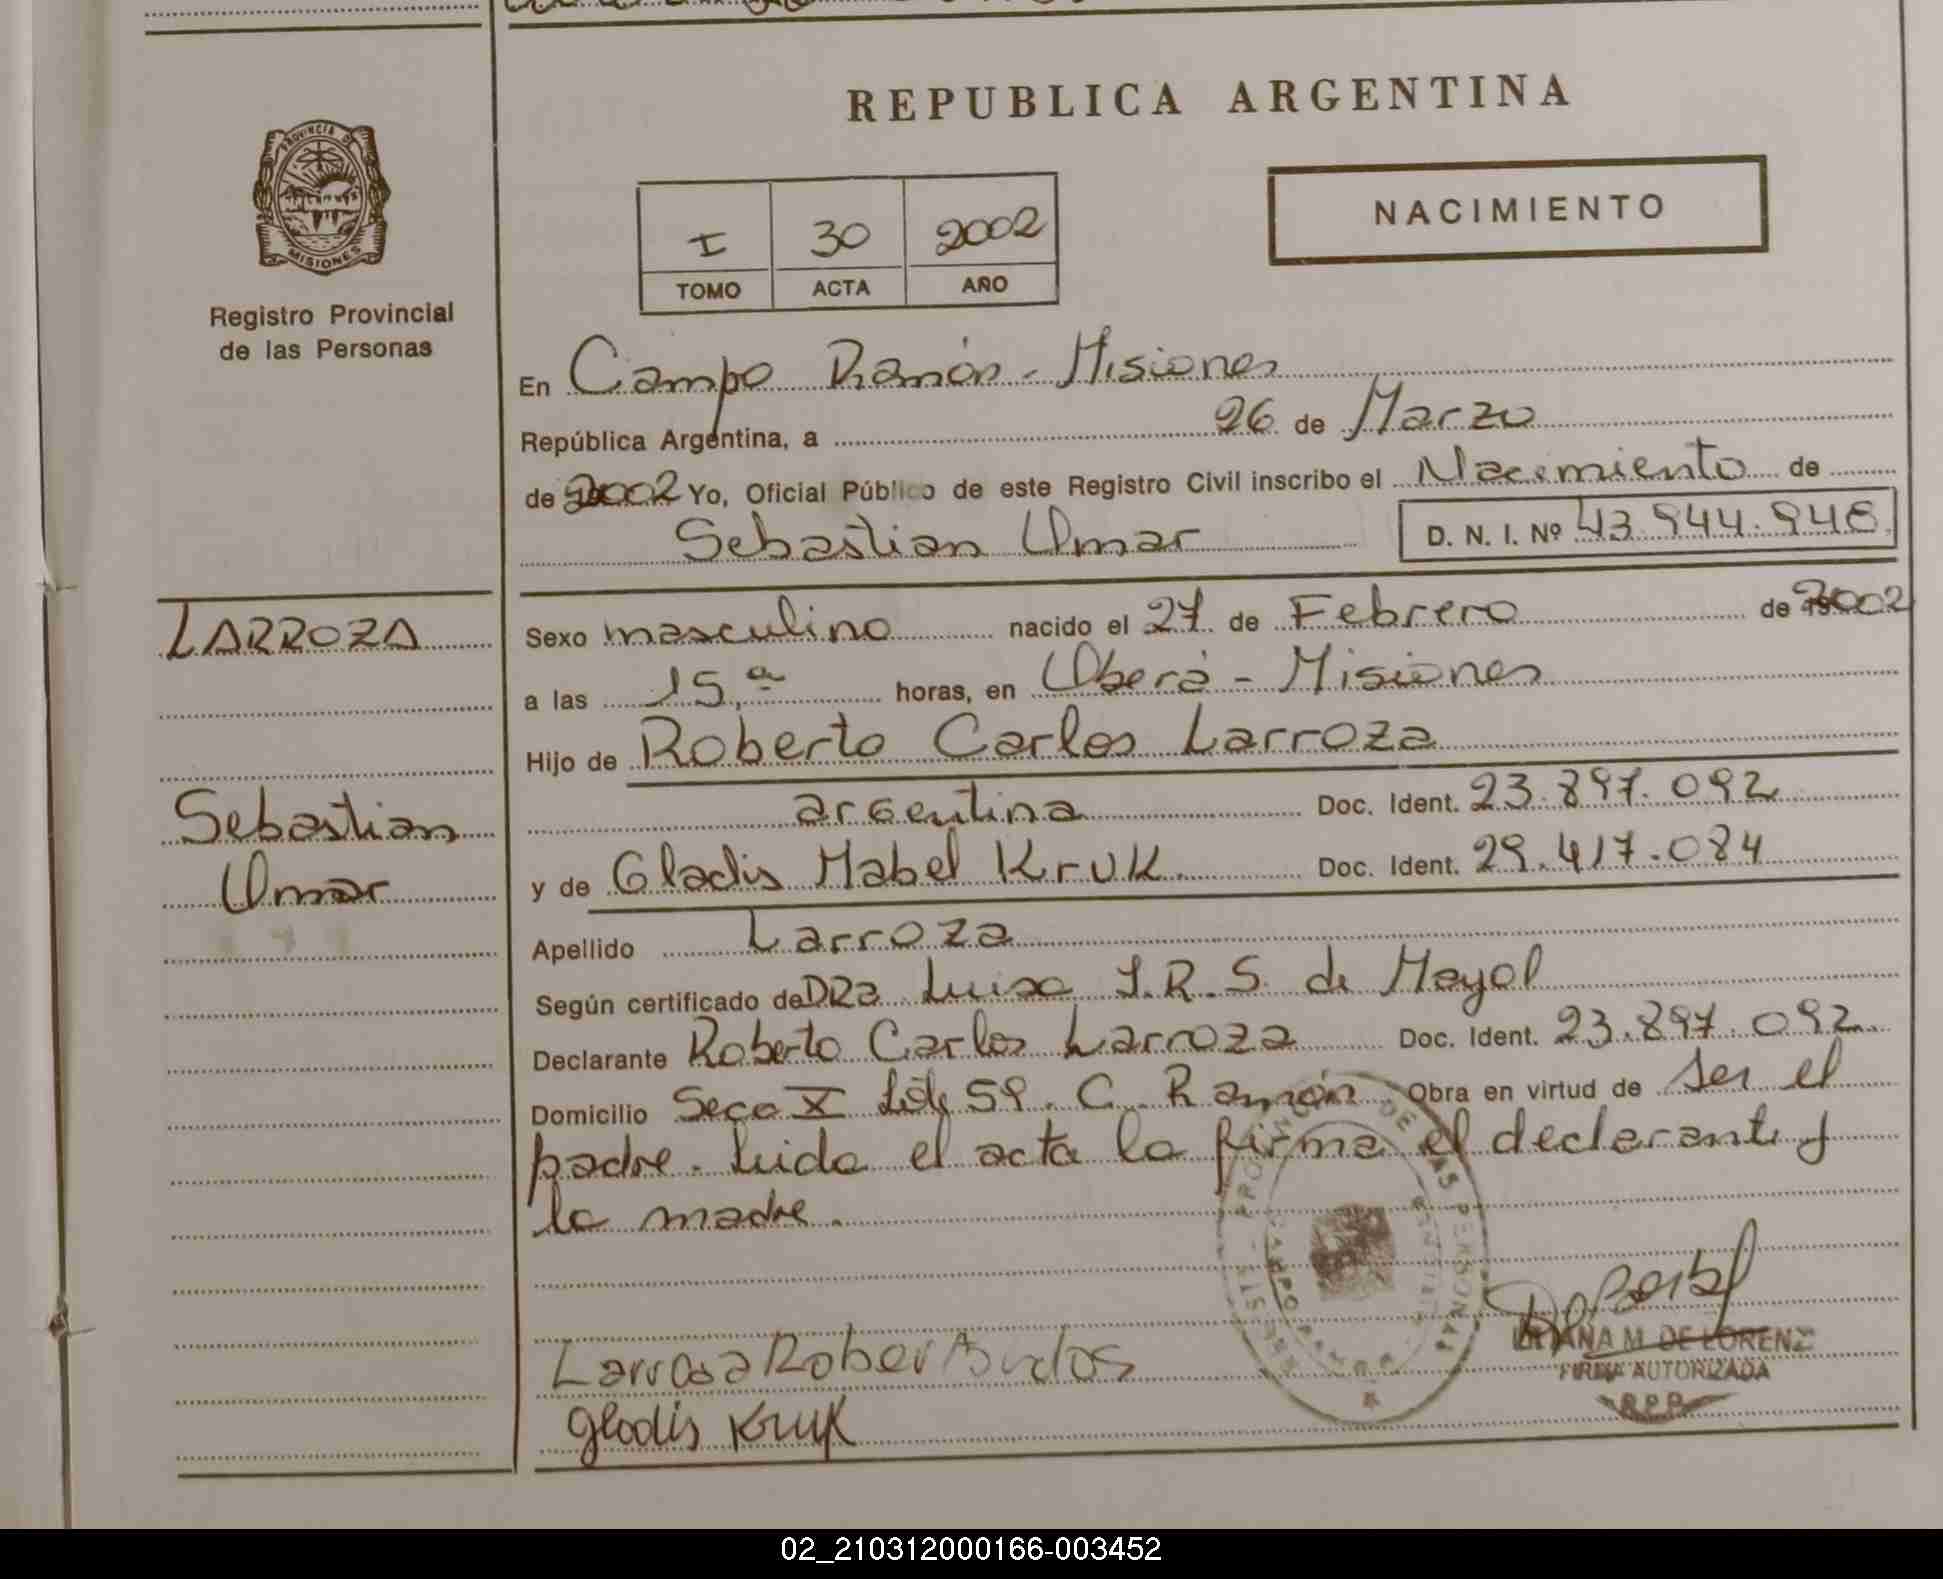 REPUBLICA ARGENTINA
PROVINCIA DE
MISIONES
Registro Provincial
de las Personas
I 30 2002
TOMO ACTA AÑO
NACIMIENTO
En Campo Ramón - Misiones
República Argentina, a 26 de Marzo
de 2002 Yo, Oficial Público de este Registro Civil inscribo el Nacimiento de
Sebastian Omar D. N. I. Nº 43.944.946
LARROZA
Sebastian
Omar
Sexo masculino nacido el 27 de Febrero de 2002
a las 15,a horas, en Oberá - Misiones
Hijo de Roberto Carlos Larroza
argentina Doc. Ident. 23.897.092
y de Gladis Mabel Kruk. Doc. Ident. 29.417.084
Apellido Larroza
Según certificado de DRa Luisa I.R.S. de Mayol
Declarante Roberto Carlos Larroza Doc. Ident. 23.897.092
Domicilio Secc X Lote 59. C. Ramón Obra en virtud de ser el
padre. Leida el acta la firma el declarante y
la madre.
Larrosa Roberto
Gladis Kruk
LILIANA M. DE LORENZ
FIRMA AUTORIZADA
R.P.P.
02_210312000166-003452